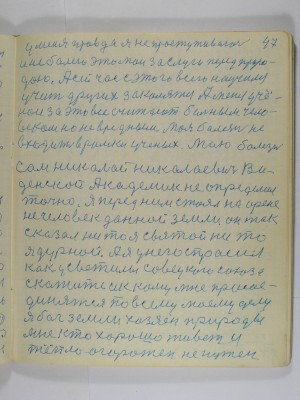 у меня правда я не проступивал 47
и не болел это мои заслуги перед приро-
дою. А сейчас этого всего научный
учит других закаляться А меня учё-
ные за это все считают больным чело-
веком но не вредным. Моя болезнь не
входит в рамки ученых. Мою болезнь
Сам николай николаевич Ви-
денской Академик не определил
точно. Я перед ним стоял на арене
не человек данной земли он так
сказал ни то я святой ни то
я дурной. А я у него спросил
как у светилы советского союза
скажите и к кому мне присое-
динятся по всему моему делу
я бог земли хозяин природы
мне кто хорошо живет и
тёпло огорожен не нужен